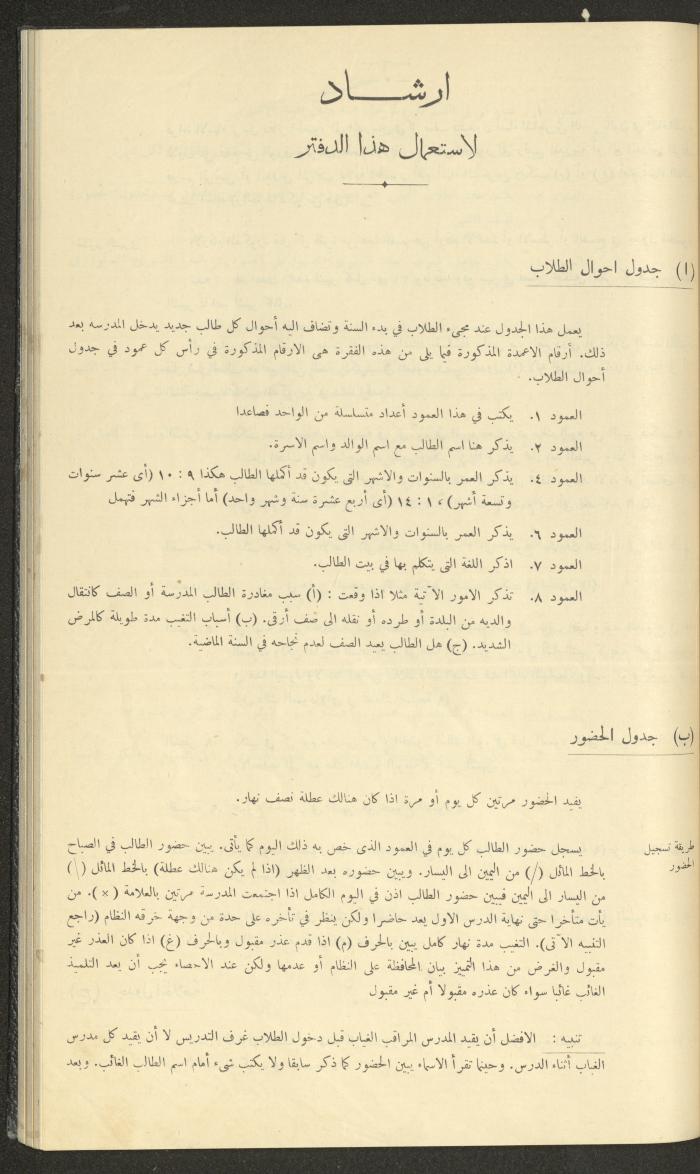 ارشاد
لاستعمال هذا الدفتر
(ا) جدول احوال الطلاب
يعمل هذا الجدول عند مجىء الطلاب في بدء السنة وتضاف اليه أحوال كل طالب جديد يدخل المدرسه بعد
ذلك. أرقام الاعمدة المذكورة فيما يلى من هذه الفقرة هى الارقام المذكورة في رأس كل عمود في جدول
أحوال الطلاب.
العمود ١. يكتب في هذا العمود أعداد متسلسلة من الواحد فصاعدا
العمود ٢. يذكر هنا اسم الطالب مع اسم الوالد واسم الاسرة.
العمود ٤. يذكر العمر بالسنوات والاشهر التى يكون قد أكملها الطالب هكذا ٩ : ١٠ (أى عشر سنوات
وتسعة أشهر)، ١ : ١٤ (أى أربع عشرة سنة وشهر واحد) أما أجزاء الشهر فتهمل
العمود ٦. يذكر العمر بالسنوات والاشهر التى يكون قد أكملها الطالب.
العمود ٧. اذكر اللغة التى يتكلم بها في بيت الطالب.
العمود ٨. تذكر الامور الآتية مثلا اذا وقعت : (أ) سبب مغادرة الطالب المدرسة أو الصف كانتقال
والديه من البلدة أو طرده أو نقله الى صف أرقى. (ب) أسباب التغيب مدة طويلة كالمرض
الشديد. (ج) هل الطالب يعيد الصف لعدم نجاحه في السنة الماضية.
(ب) جدول الحضور
يقيد الحضور مرتين كل يوم أو مرة اذا كان هنالك عطلة نصف نهار.
طريقة تسجيل
الحضور
يسجل حضور الطالب كل يوم في العمود الذى خص به ذلك اليوم كما يأتى. يبين حضور الطالب في الصباح
بالخط المائل (/) من اليمين الى اليسار. ويبين حضوره بعد الظهر (اذا لم يكن هنالك عطلة) بالخط المائل (\)
من اليسار الى اليمين فيبين حضور الطالب اذن في اليوم الكامل اذا اجتمعت المدرسة مرتين بالعلامة (×). من
يأت متأخرا حتى نهاية الدرس الاول يعد حاضرا ولكن ينظر في تأخره على حدة من وجهة خرقه النظام (راجع
التنبيه الآتى). التغيب مدة نهار كامل يبين بالحرف (م) اذا قدم عذر مقبول وبالحرف (غ) اذا كان العذر غير
مقبول والغرض من هذا التمييز بيان المحافظة على النظام أو عدمها ولكن عند الاحصاء يجب أن يعد التلميذ
الغائب غائبا سواء كان عذره مقبولا أم غير مقبول
تنبيه : الافضل أن يقيد المدرس المراقب الغياب قبل دخول الطلاب غرف التدريس لا أن يقيد كل مدرس
الغياب أثناء الدرس. وحينما تقرأ الاسماء يبين الحضور كما ذكر سابقا ولا يكتب شىء أمام اسم الطالب الغائب. وبعد